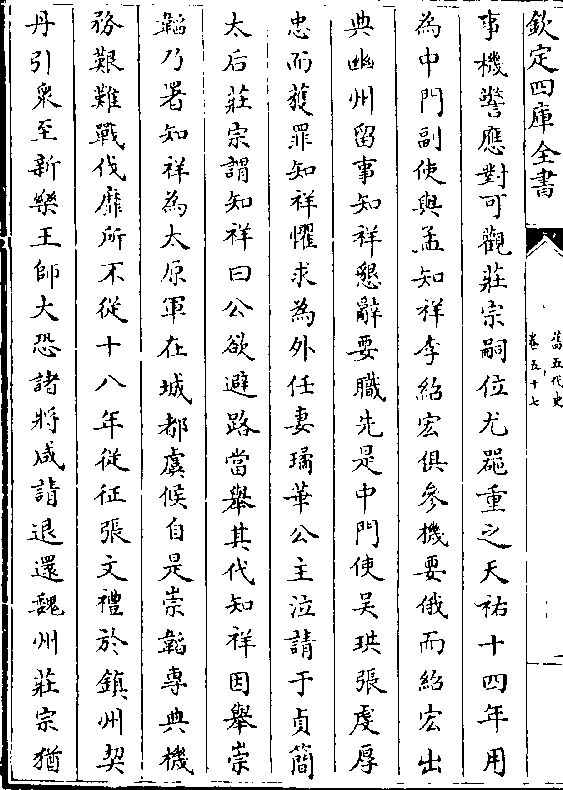 欽定四庫全書
舊五代史
卷五十七
事機警應對可觀莊宗嗣位尤器重之天祐十四年用
為中門副使與孟知祥李紹宏俱參機要俄而紹宏出
典幽州留事知祥懇辭要職先是中門使吳珙張虔厚
忠而獲罪知祥懼求為外任妻璚華公主泣請于貞簡
太后莊宗謂知祥曰公欲避路當舉其代知祥因舉崇
韜乃署知祥為太原軍在城都虞候自是崇韜專典機
務艱難戰伐靡所不從十八年從征張文禮於鎮州契
丹引衆至新樂王師大恐諸將咸請退還魏州莊宗猶